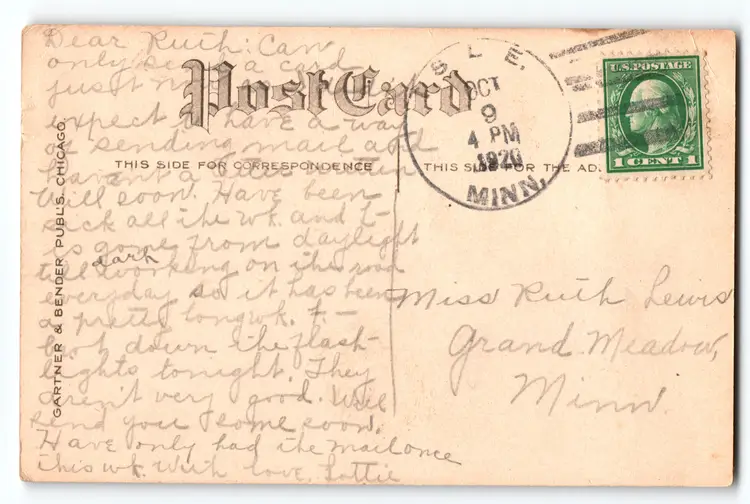 Dear Ruth: Can
only send a card
just now
expect to have a way
of sending mail and
haven't a
Will soon. Have been
sick all the wk. and F-
is gone from daylight
till dark working on the road
everyday so it has been
a pretty long wk. F.-
bot down the flash-
lights tonight. They
aren't very good. Will
send you some soon.
Have only had the mail once
this wk. With love, Lottie
Post Card
THIS SIDE FOR CORRESPONDENCE
THIS SIDE FOR THE AD
GARTNER & BENDER PUBL'S. CHICAGO.
SLE,
OCT
9
4 PM
1920
MINN.
U.S. POSTAGE
1 CENT 1
Miss Ruth Lewis
Grand Meadow,
Minn.